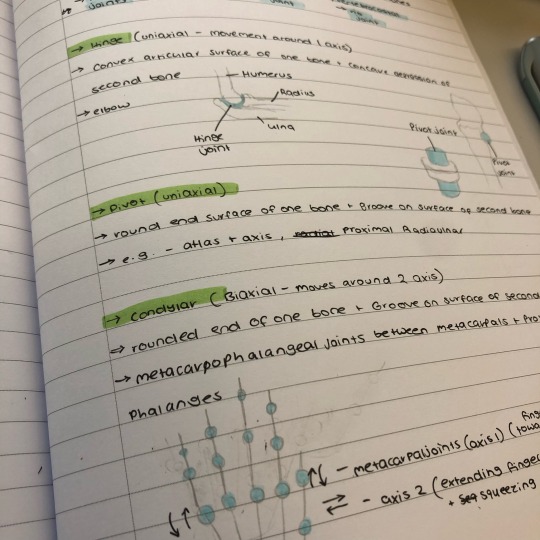 joints
joint
→ Hinge (uniaxial - movement around 1 axis)
→ convex articular surface of one bone + concave depression of
second bone
→ elbow
Humerus
Radius
ulna
Hinge
joint
Pivot Joint
Pivot
joint
→ pivot (uniaxial)
→ round end surface of one bone + Groove on surface of second bone
→ e.g. - atlas + axis, Proximal Radioulnar
→ condylar (Biaxial - moves around 2 axis)
→ rounded end of one bone + Groove on surface of second
→ metacarpophalangeal joints between metacarpals + Pro
phalanges
↑↓ - metacarpal joints (axis 1) (towa
⇄ - axis 2 (extending finge
+ squeezing
↓↑